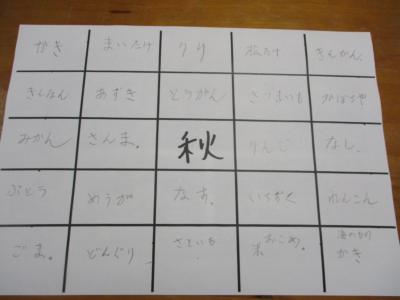 かき まいたけ くり 松たけ きんかん
ぎんなん あずき とうがん さつまいも かぼちゃ
みかん さんま。 秋 りんご なし、
ぶどう めうが なす。 いちぢく れんこん
ごま。 どんぐり さといも 米 おこめ。 海のカキ かき